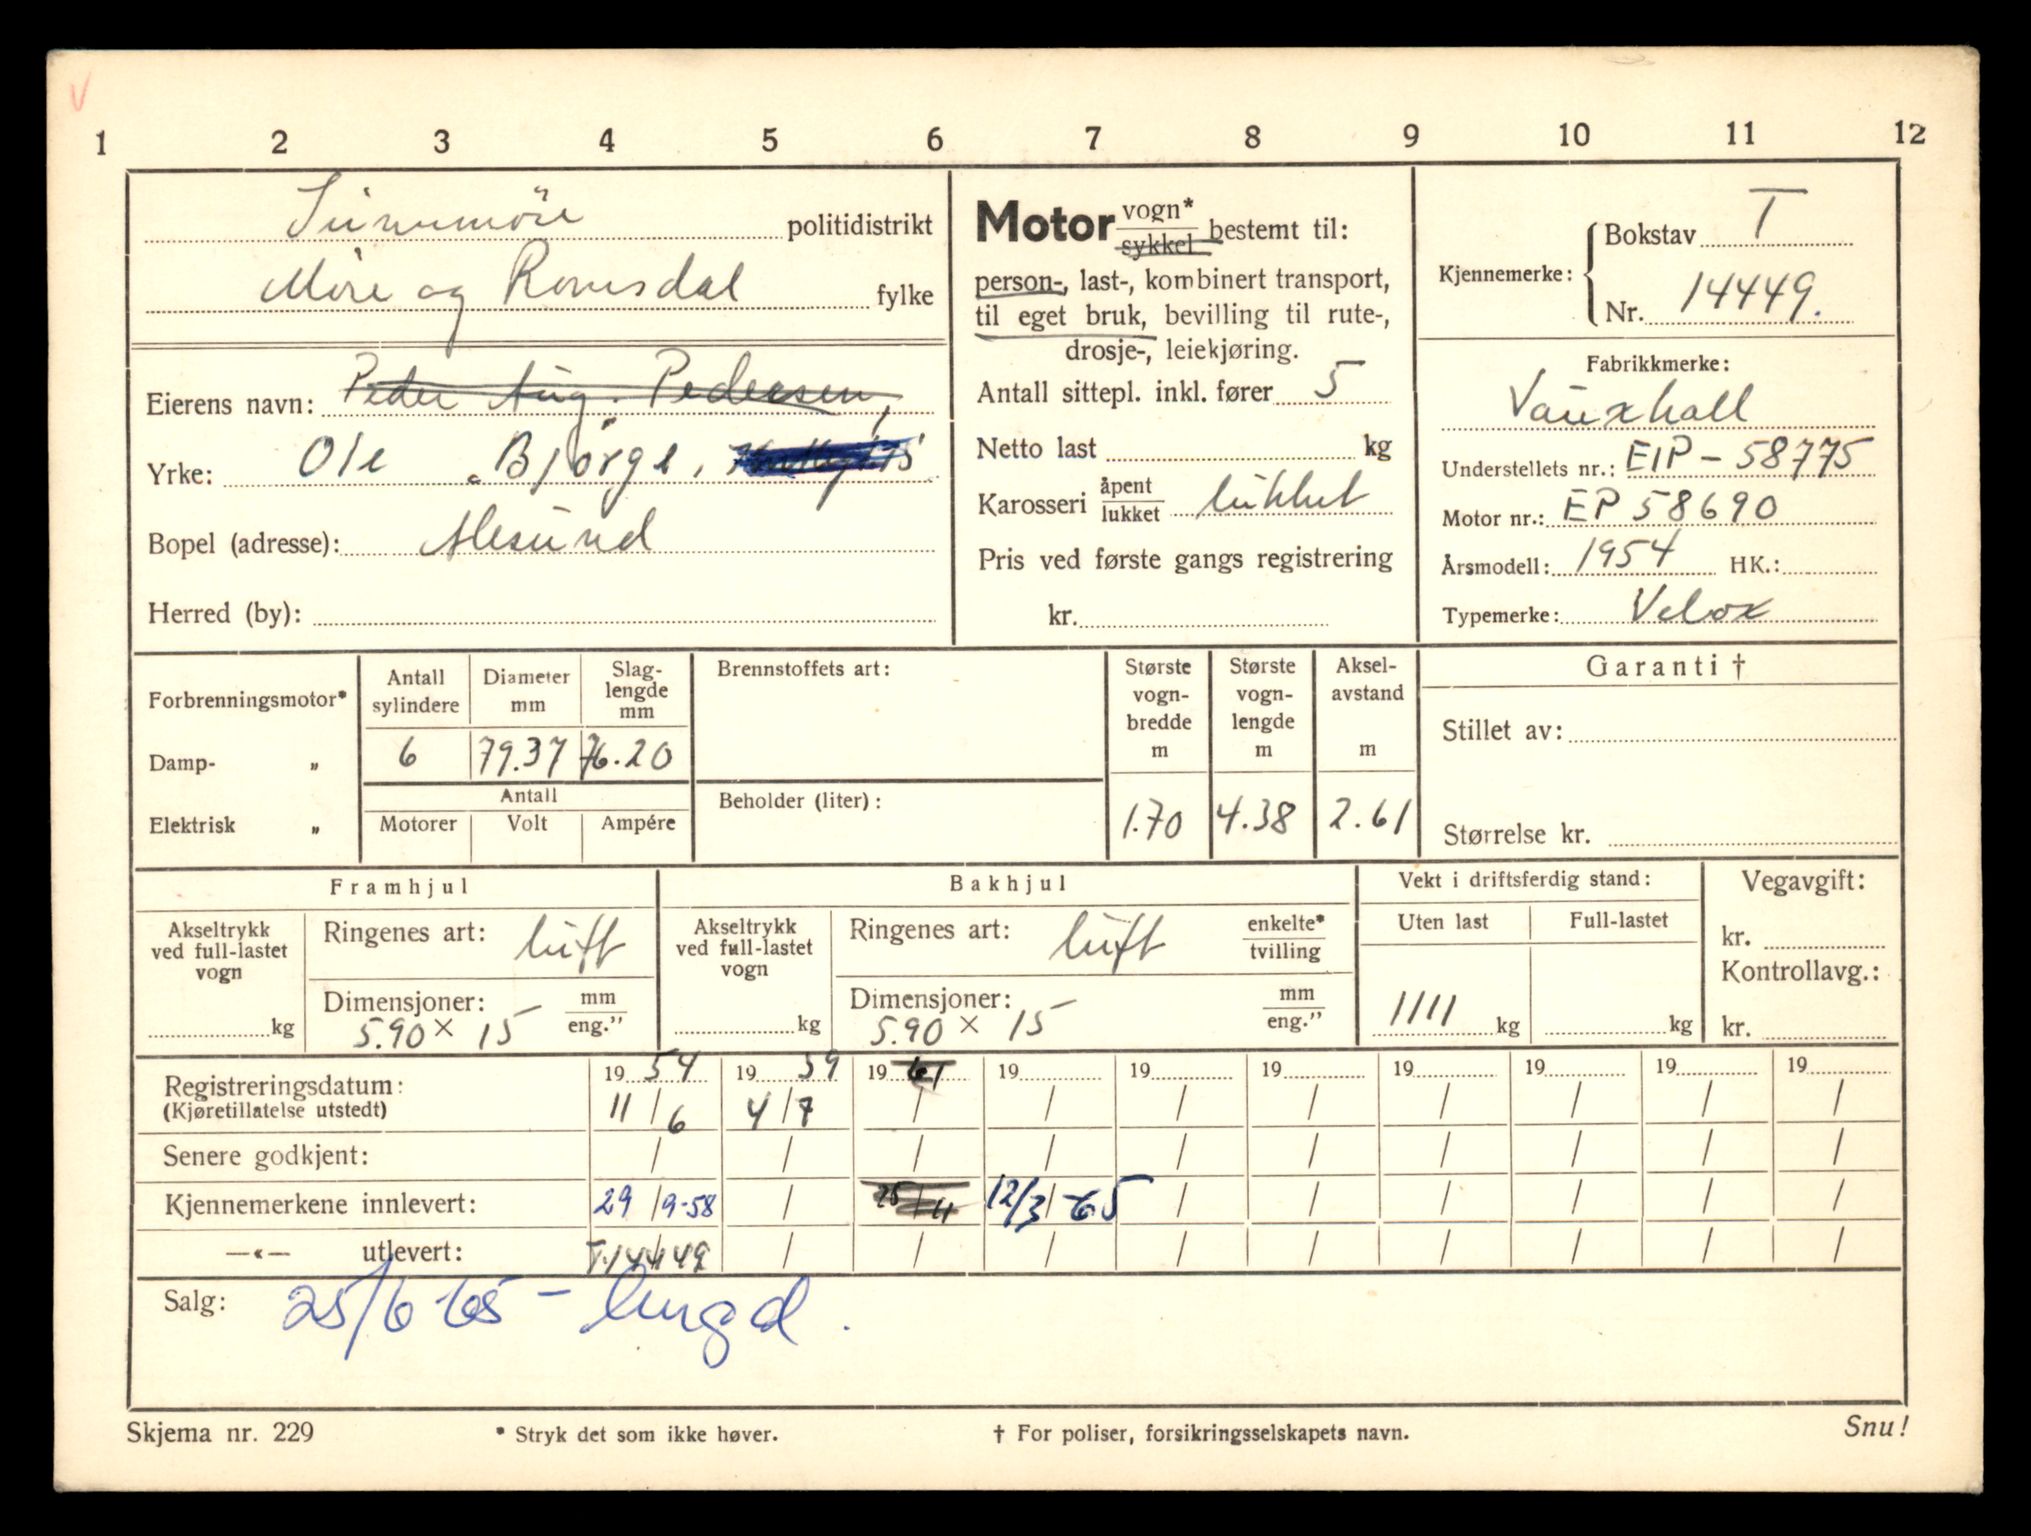 V
1 2 3 4 5 6 7 8 9 10 11 12
Sunnmöre politidistrikt
Möre og Romsdal fylke
Eierens navn: Peder Aug. Pedersen,
Yrke: Ole Bjørge,
Bopel (adresse): Alesund
Herred (by):
Motor vogn* sykkel bestemt til:
person-, last-, kombinert transport,
til eget bruk, bevilling til rute-,
drosje-, leiekjøring.
Antall sittepl. inkl. fører 5
Netto last kg
Karosseri åpent lukket lukket
Pris ved første gangs registrering
kr.
Kjennemerke: Bokstav T
Nr. 14449.
Fabrikkmerke:
Vauxhall
Understellets nr.: EIP - 58775
Motor nr.: EP 58690
Årsmodell: 1954 HK.:
Typemerke: Velox
Forbrenningsmotor*
Damp- „
Elektrisk „
Antall sylindere
Diameter mm
Slag-lengde mm
6 79.37 76.20
Antall
Motorer Volt Ampére
Brennstoffets art:
Beholder (liter):
Største vogn-bredde m
Største vogn-lengde m
Aksel-avstand m
1.70 4.38 2.61
Garanti †
Stillet av:
Størrelse kr.
Framhjul
Akseltrykk ved full-lastet vogn
kg
Ringenes art: luft
Dimensjoner: mm eng.”
5.90 × 15
Bakhjul
Akseltrykk ved full-lastet vogn
kg
Ringenes art: luft enkelte* tvilling
Dimensjoner: mm eng.”
5.90 × 15
Vekt i driftsferdig stand:
Uten last Full-lastet
1111 kg kg
Vegavgift:
kr.
Kontrollavg.:
kr.
Registreringsdatum: 19 54 19 59 19 61 19 19 19 19 19 19 19
(Kjøretillatelse utstedt) 11/6 4/7 / / / / / / / /
Senere godkjent: / / / / / / / / / /
Kjennemerkene innlevert: 29/9-58 / 25/11 12/3-65 / / / / / /
—«— utlevert: T.14449 / / / / / / / / /
Salg: 25/6-65 -
Skjema nr. 229
* Stryk det som ikke høver.
† For poliser, forsikringsselskapets navn.
Snu!